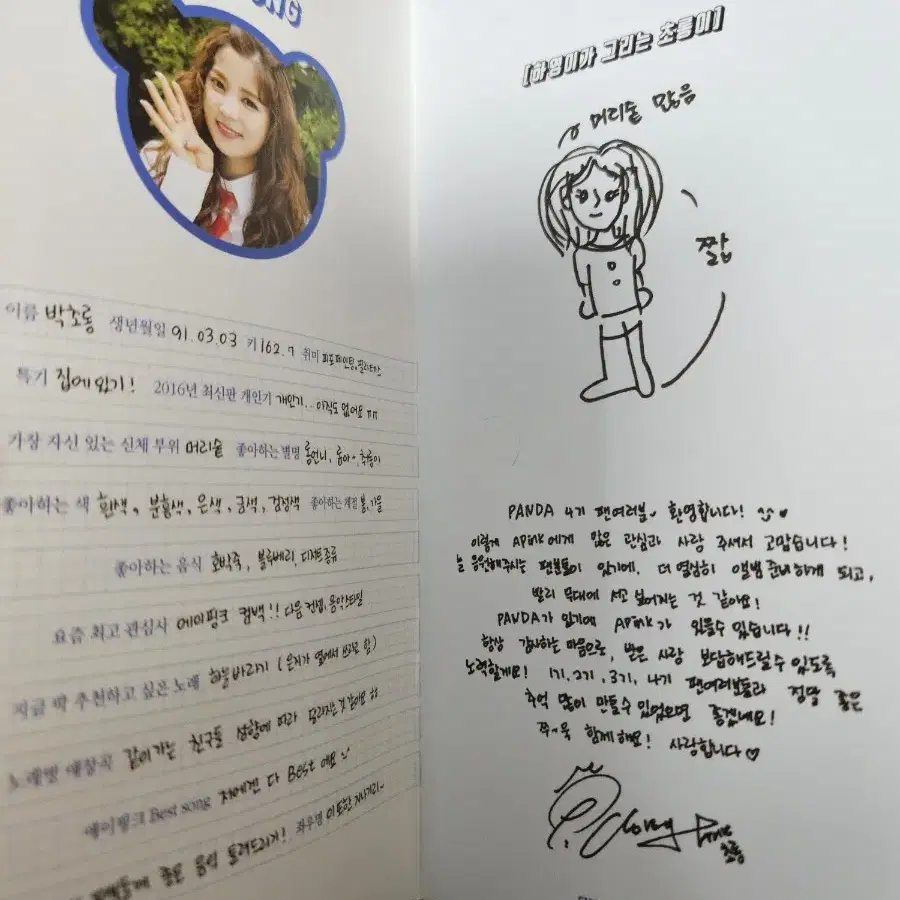 ONG
이름 박초롱 생년월일 91.03.03 키 162.7 취미 피포페인팅, 필라테스
특기 집에 있기! 2016년 최신판 개인기 개인기.. 아직도 없어요 ㅠㅠ
가장 자신 있는 신체 부위 머리숱 좋아하는 별명 롱언니, 롱아~, 초롱이
좋아하는 색 흰색, 분홍색, 은색, 금색, 검정색 좋아하는 계절 봄, 가을
좋아하는 음식 호박죽, 블루베리, 디저트종류
요즘 최고 관심사 에이핑크 컴백!! 다음 컨셉, 음악스타일
지금 딱 추천하고 싶은 노래 하늘바라기 (은지가 옆에서 쓰라고 함)
노래방 애창곡 같이가는 친구들 성향에 따라 달라지는 것 같아요 ㅎㅎ
에이핑크 Best song 저에겐 다 Best 예요
좋은 음악 들려드리기! 좌우명 이 또한 지나가리~
[하영이가 그리는 초롱이]
머리숱 많음
짧
PANDA 4기 팬여러분 환영합니다!
이렇게 APink에게 많은 관심과 사랑 주셔서 고맙습니다!
늘 응원해주시는 팬분들이 있기에, 더 열심히 앨범 준비하게 되고,
빨리 무대에 서고 싶어지는 것 같아요!
PANDA가 있기에 APink가 있을수 있습니다!!
항상 감사하는 마음으로, 받은 사랑 보답해드릴수 있도록
노력할게요! 1기, 2기, 3기, 4기 팬여러분들과 정말 좋은
추억 많이 만들수 있었으면 좋겠네요!
쭈~욱 함께해요! 사랑합니다♡
초롱